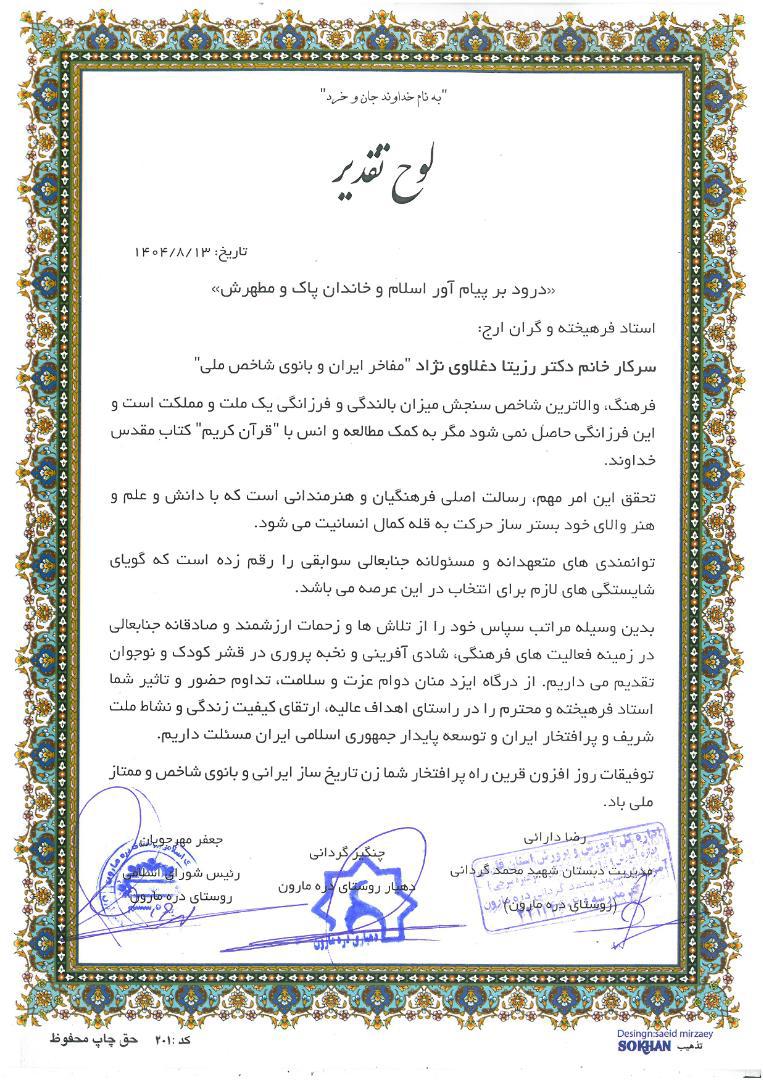 "به نام خداوند جان و خرد"
لوح تقدیر
تاریخ: ۱۴۰۴/۸/۱۳
«درود بر پیام آور اسلام و خاندان پاک و مطهرش»
استاد فرهیخته و گران ارج:
سرکار خانم دکتر رزیتا دغلاوی نژاد "مفاخر ایران و بانوی شاخص ملی"
فرهنگ، والاترین شاخص سنجش میزان بالندگی و فرزانگی یک ملت و مملکت است و
این فرزانگی حاصل نمی شود مگر به کمک مطالعه و انس با "قرآن کریم" کتاب مقدس
خداوند.
تحقق این امر مهم، رسالت اصلی فرهنگیان و هنرمندانی است که با دانش و علم و
هنر والای خود بستر ساز حرکت به قله کمال انسانیت می شود.
توانمندی های متعهدانه و مسئولانه جنابعالی سوابقی را رقم زده است که گویای
شایستگی های لازم برای انتخاب در این عرصه می باشد.
بدین وسیله مراتب سپاس خود را از تلاش ها و زحمات ارزشمند و صادقانه جنابعالی
در زمینه فعالیت های فرهنگی، شادی آفرینی و نخبه پروری در قشر کودک و نوجوان
تقدیم می داریم. از درگاه ایزد منان دوام عزت و سلامت، تداوم حضور و تاثیر شما
استاد فرهیخته و محترم را در راستای اهداف عالیه، ارتقای کیفیت زندگی و نشاط ملت
شریف و پرافتخار ایران و توسعه پایدار جمهوری اسلامی ایران مسئلت داریم.
توفیقات روز افزون قرین راه پرافتخار شما زن تاریخ ساز ایرانی و بانوی شاخص و ممتاز
ملی باد.
رضا دارائی
مدیریت دبستان شهید محمد گردانی
(روستای دره مارون)
چنگیز گردانی
دهیار روستای دره مارون
دهیاری دره مارون
جعفر مهرجویان
رئیس شورای اسلامی
روستای دره مارون
اداره کل آموزش و پرورش استان
کد :۲۰۱ حق چاپ محفوظ
Desingn:saeid mirzaey
تذهیب SOKHAN